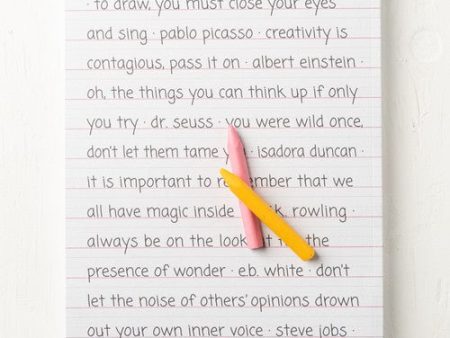 · to draw, you must close your eyes
and sing · pablo picasso · creativity is
contagious, pass it on · albert einstein ·
oh, the things you can think up if only
you try · dr. seuss · you were wild once,
don't let them tame you · isadora duncan ·
it is important to remember that we
all have magic inside k. rowling ·
always be on the lookout for the
presence of wonder · e.b. white · don't
let the noise of others' opinions drown
out your own inner voice · steve jobs ·